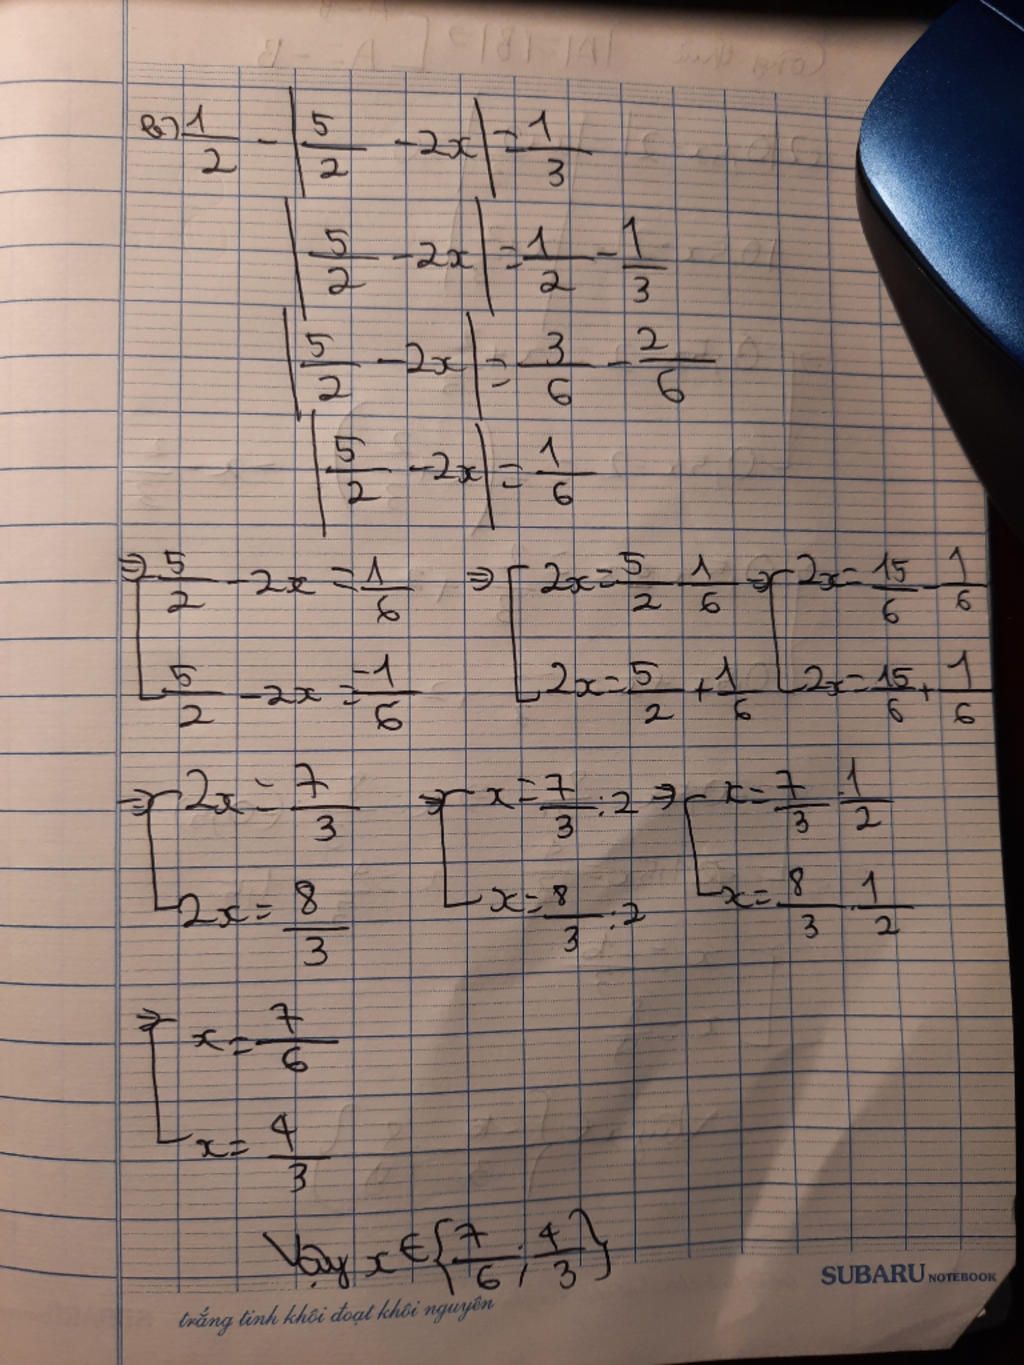 b) 1/2 - |5/2 - 2x| = 1/3
|5/2 - 2x| = 1/2 - 1/3
|5/2 - 2x| = 3/6 - 2/6
|5/2 - 2x| = 1/6
⇒ [ 5/2 - 2x = 1/6 ⇒ [ 2x = 5/2 - 1/6 ⇒ [ 2x = 15/6 - 1/6
5/2 - 2x = -1/6 2x = 5/2 + 1/6 2x = 15/6 + 1/6
⇒ [ 2x = 7/3 ⇒ [ x = 7/3 : 2 ⇒ [ x = 7/3 . 1/2
2x = 8/3 x = 8/3 : 2 x = 8/3 . 1/2
⇒ [ x = 7/6
x = 4/3
Vậy x ∈ {7/6 ; 4/3}
SUBARU NOTEBOOK
trắng tinh khôi đoạt khôi nguyên